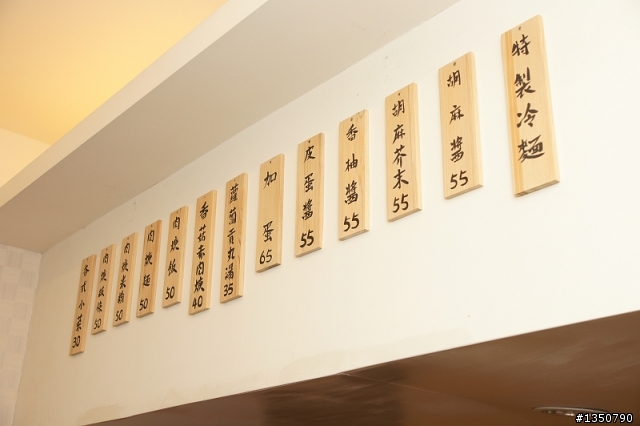 特製冷麵
胡麻醬 55
胡麻芥末 55
香柚醬 55
皮蛋醬 55
加蛋 65
蘿蔔貢丸湯 35
香菇赤肉焿 40
肉焿飯 50
肉焿麵 50
肉焿米粉 50
肉焿板條 50
各式小菜 30
#1350790